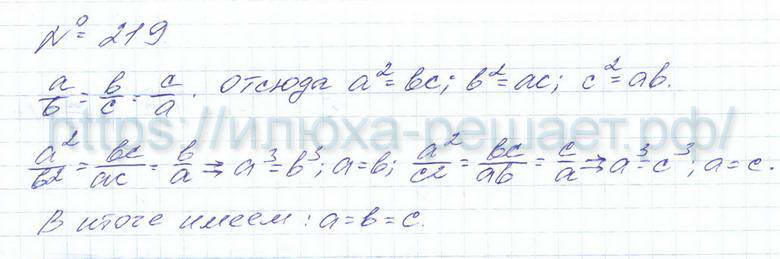 № 219
a/b = b/c = c/a. отсюда a²=bc; b²=ac; c²=ab.
https://илюха-решает.рф/
a²/b² = bc/ac = b/a ⇒ a³=b³; a=b; a²/c² = bc/ab = c/a ⇒ a³=c³; a=c.
В итоге имеем: a=b=c.